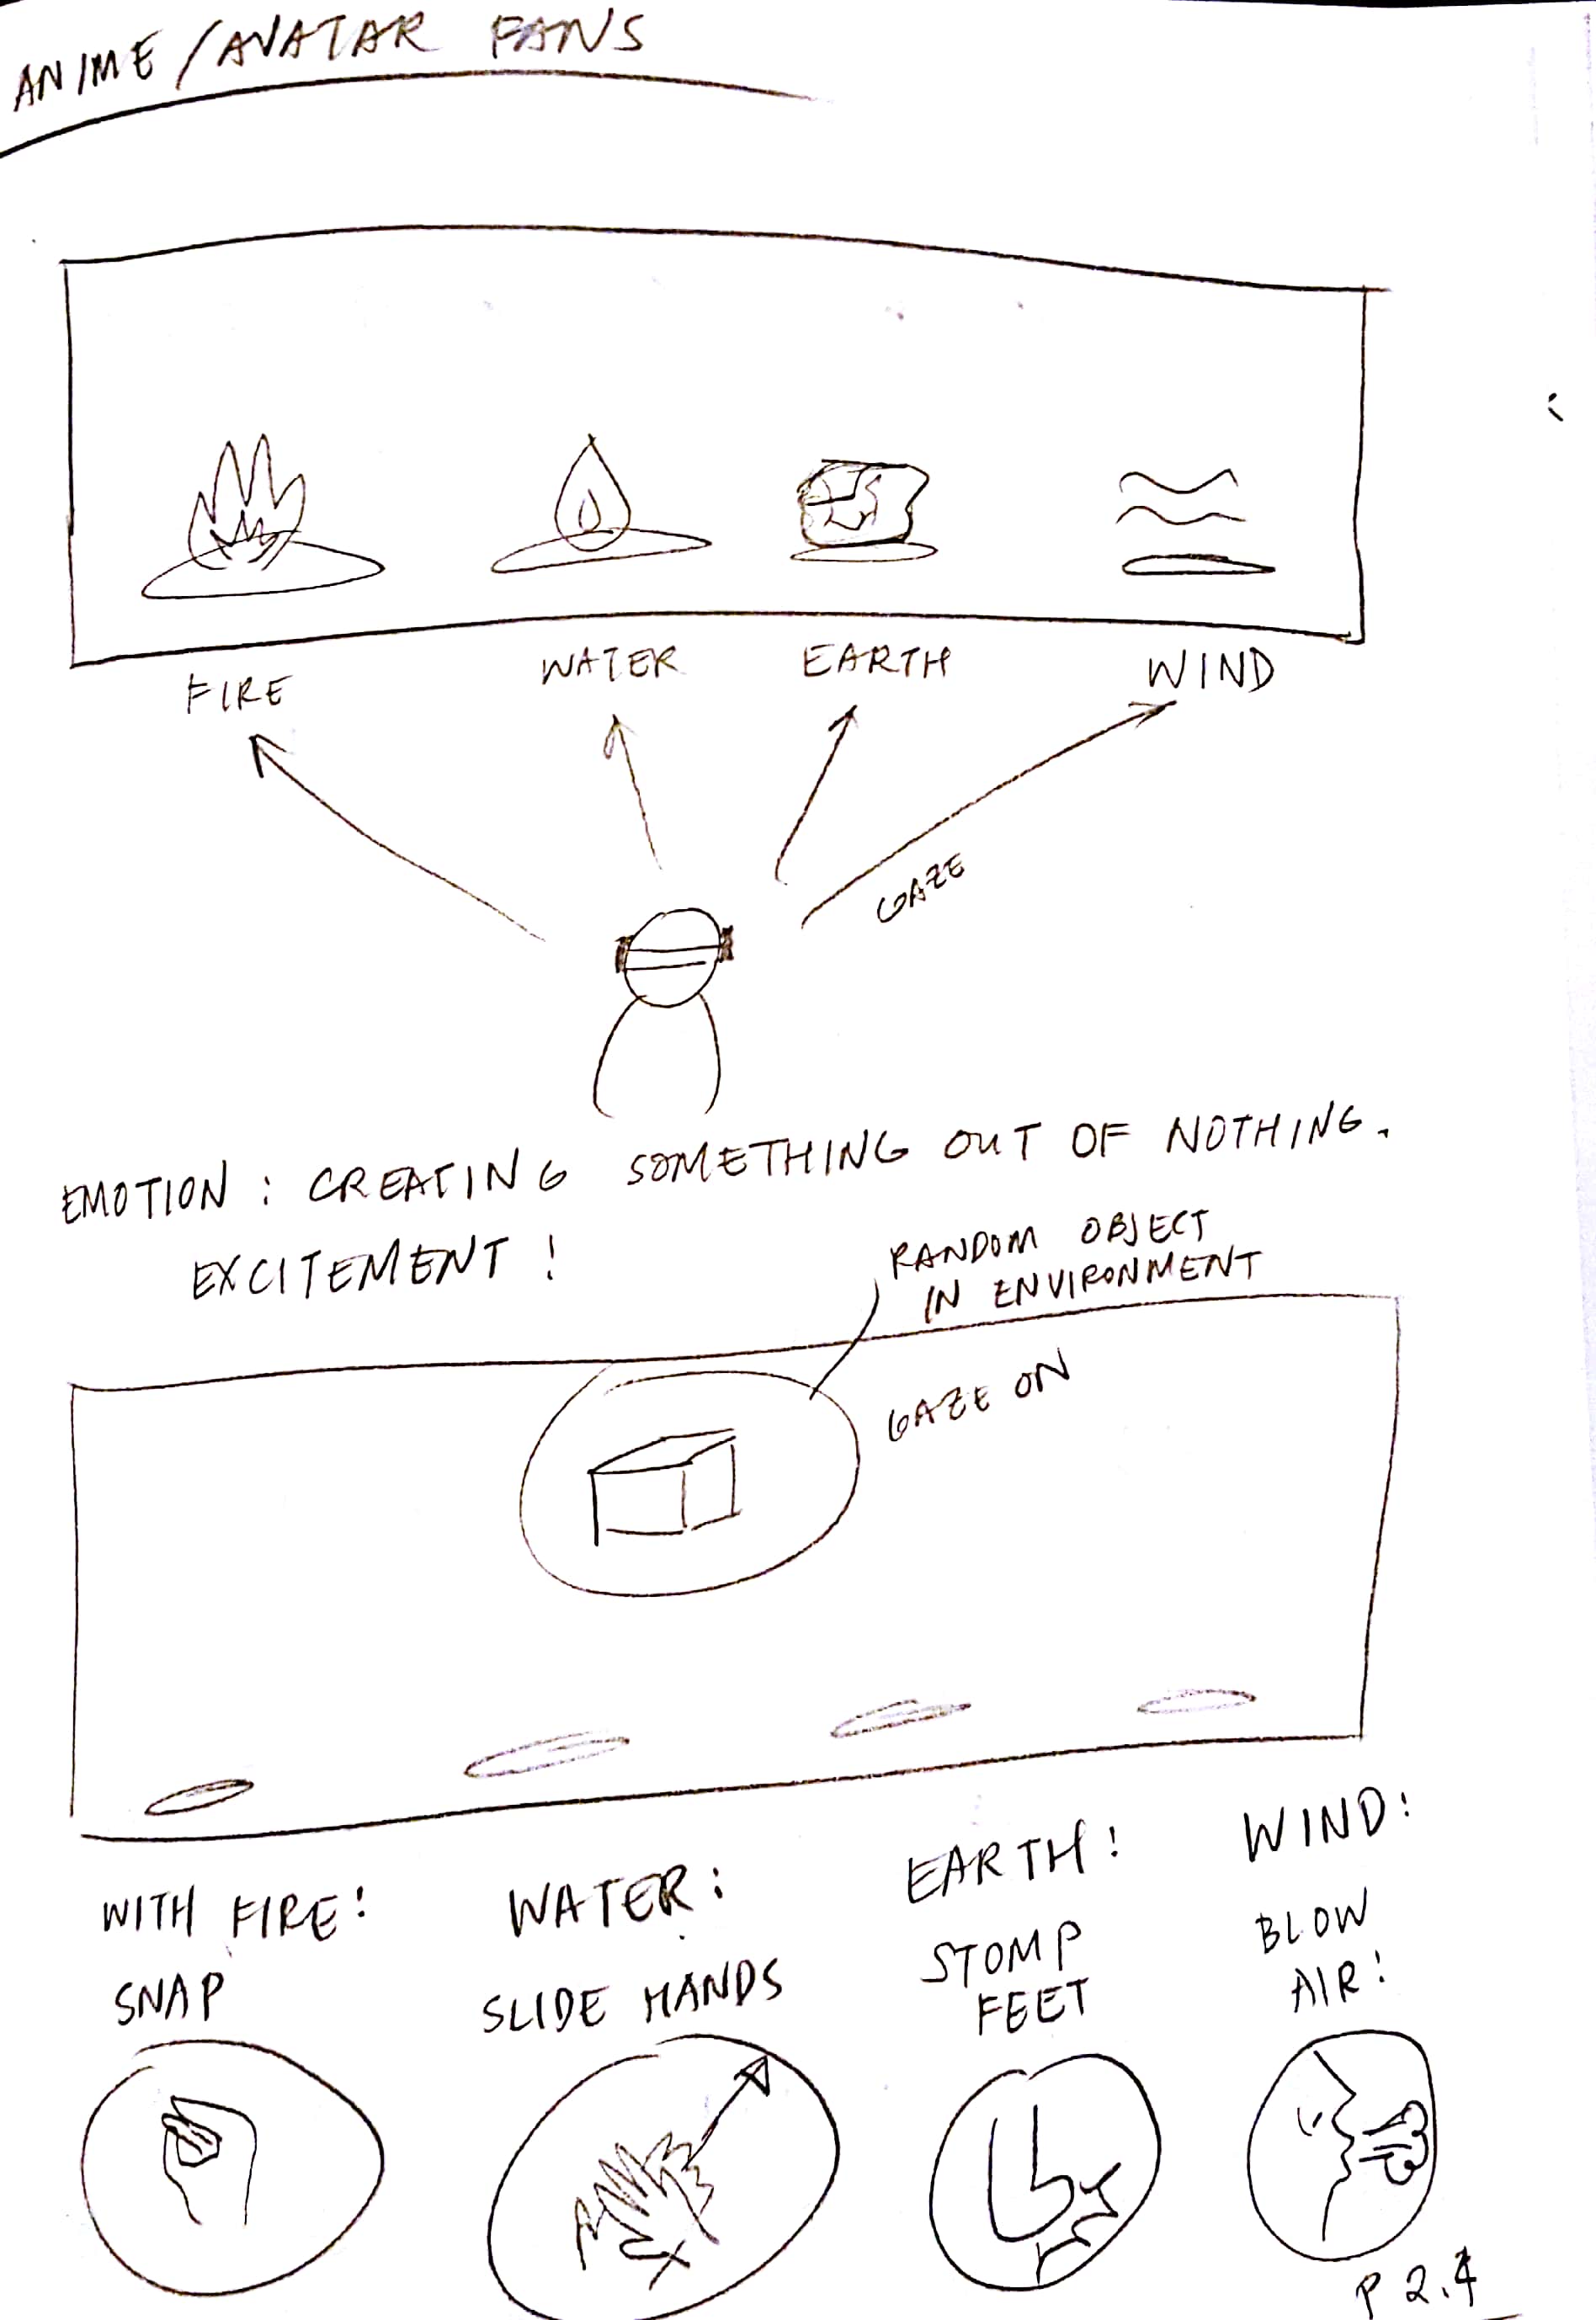 ANIME/AVATAR FANS
FIRE
WATER
EARTH
WIND
GAZE
EMOTION : CREATING SOMETHING OUT OF NOTHING.
EXCITEMENT !
RANDOM OBJECT
IN ENVIRONMENT
GAZE ON
WITH FIRE!
SNAP
WATER:
SLIDE HANDS
EARTH!
STOMP
FEET
WIND:
BLOW
AIR:
P 2.4